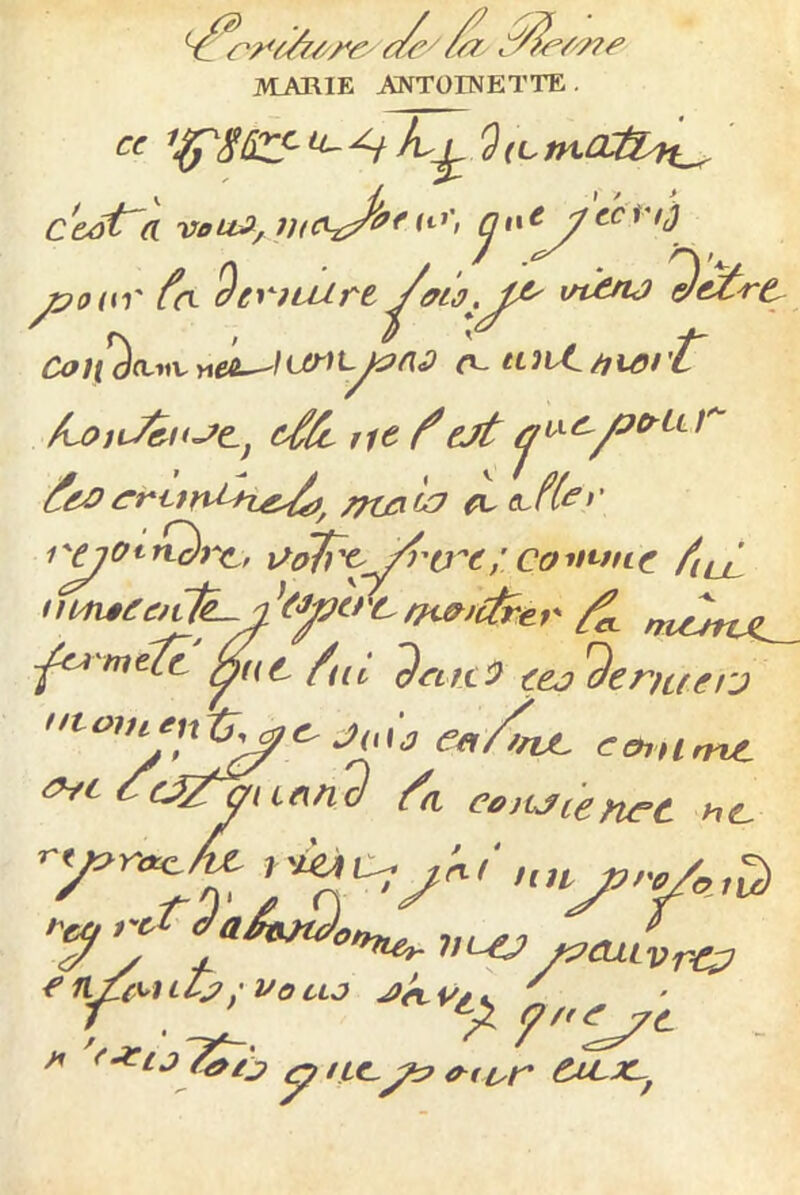 Ecriture de la Reine
MARIE ANTOINETTE.
ce 16 8bre a 4 h ½ du matin
c'est à vous, ma soeur, que j'écris
pour la derniere fois. je viens d'être
condamnée non pas a une mort
honteuse, elle ne l'est que pour
les criminels, mais a aller
rejoindre votre frere; comme lui
innocente j'éspère montrer la même
fermeté que lui dans ces derniers
moments. je suis calme comme
on l'est quand la consience ne
reproche rien; j'ai un profond
regret d'abandonner mes pauvres
enfants; vous savez que je
n'existois que pour eux,